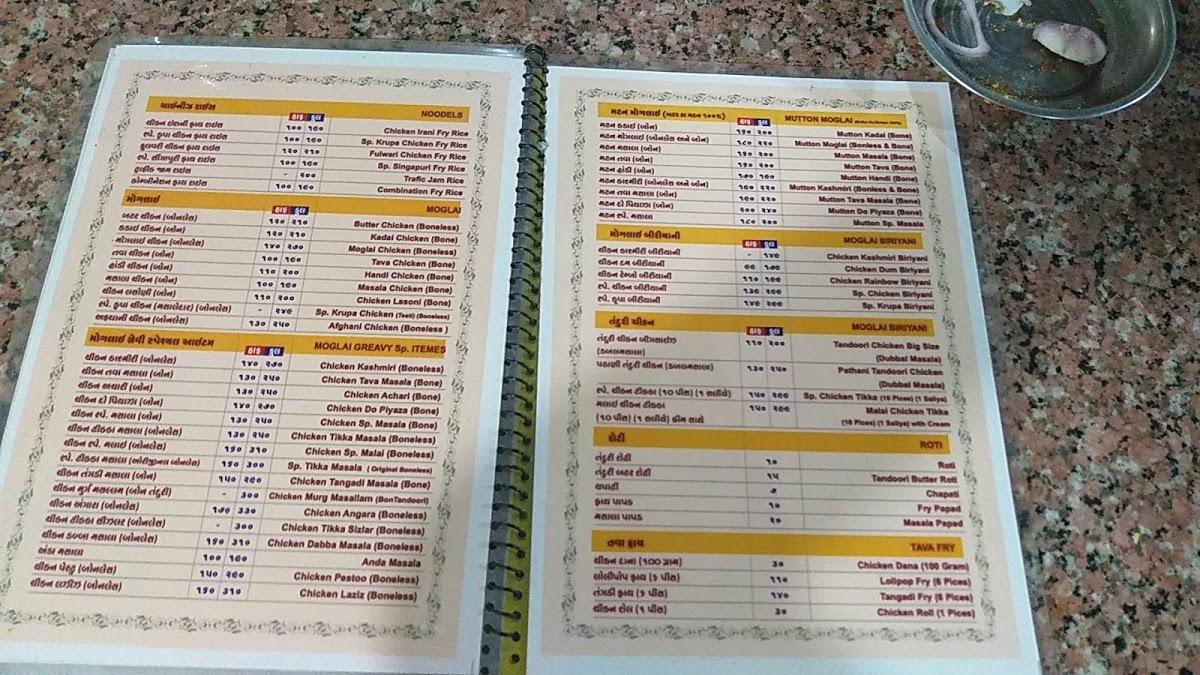 ચાઈનીઝ રાઈસ હાફ ફુલ NOODELS
ચીકન ઈરાની ફ્રાય રાઈસ ૧૦૦ ૧૯૦ Chicken Irani Fry Rice
સ્પે. કૃપા ચીકન ફ્રાય રાઈસ ૧૦૦ ૧૯૦ Sp. Krupa Chicken Fry Rice
ફુલવારી ચીકન ફ્રાય રાઈસ ૧૨૦ ૨૧૦ Fulwari Chicken Fry Rice
સ્પે. સીંગાપુરી ફ્રાય રાઈસ ૧૦૦ ૧૯૦ Sp. Singapuri Fry Rice
ટ્રાફીક જામ રાઈસ - ૨૦૦ Trafic Jam Rice
કોમ્બીનેશન ફ્રાય રાઈસ ૧૦૦ ૧૯૦ Combination Fry Rice
મોગલાઈ હાફ ફુલ MOGLAI
બટર ચીકન (બોનલેસ) ૧૨૦ ૨૧૦ Butter Chicken (Boneless)
કડાઈ ચીકન (બોન) ૧૨૦ ૨૧૦ Kadai Chicken (Bone)
મોગલાઈ ચીકન (બોનલેસ) ૧૪૦ ૨૭૦ Moglai Chicken (Boneless)
તવા ચીકન (બોન) ૧૦૦ ૧૯૦ Tava Chicken (Bone)
હાંડી ચીકન (બોન) ૧૧૦ ૨૦૦ Handi Chicken (Bone)
મસાલા ચીકન (બોન) ૧૦૦ ૧૯૦ Masala Chicken (Bone)
ચીકન લસોણી (બોન) ૧૧૦ ૨૦૦ Chicken Lasoni (Bone)
સ્પે. કૃપા ચીકન (મસાલેદાર) (બોનલેસ) - ૨૪૯ Sp. Krupa Chicken (Boneless)
અફઘાની ચીકન (બોનલેસ) ૧૩૦ ૨૫૦ Afghani Chicken (Boneless )
મોગલાઈ ગ્રેવી સ્પેશ્યલ આઈટમ હાફ ફુલ MOGLAI GREAVY Sp. ITEMES
ચીકન કાશ્મીરી (બોનલેસ) ૧૪૦ ૨૭૦ Chicken Kashmiri (Boneless)
ચીકન તવા મસાલા (બોન) ૧૩૦ ૨૫૦ Chicken Tava Masala (Bone)
ચીકન અચારી (બોન) ૧૩૦ ૨૫૦ Chicken Achari (Bone)
ચીકન દો પિયાઝા (બોન) ૧૪૦ ૨૭૦ Chicken Do Piyaza (Bone)
ચીકન સ્પે. મસાલા (બોન) ૧૩૦ ૨૫૦ Chicken Sp. Masala (Bone)
ચીકન ટીક્કા મસાલા (બોનલેસ) ૧૩૦ ૨૫૦ Chicken Tikka Masala (Boneless)
ચીકન સ્પે. મલાઈ (બોનલેસ) ૧૬૦ ૩૧૦ Chicken Sp. Malai (Boneless)
સ્પે. ટીક્કા મસાલા (ઓરીજીનલ બોનલેસ) ૧૬૦ ૩૦૦ Sp. Tikka Masala ( Original Boneless)
ચીકન તંગડી મસાલા (બોન) ૧૫૦ ૨૯૦ Chicken Tangadi Masala (Bone)
ચીકન મુર્ગ મસલ્લમ (બોન તંદુરી) - ૩૦૦ Chicken Murg Masallam (BonTandoori)
ચીકન અંગારા (બોનલેસ) ૧૭૦ ૩૩૦ Chicken Angara (Boneless)
ચીકન ટીક્કા સીઝલર (બોનલેસ) - ૩૦૦ Chicken Tikka Sizlar (Boneless)
ચીકન ડબ્બા મસાલા (બોનલેસ) ૧૬૦ ૩૧૦ Chicken Dabba Masala (Boneless)
અંડા મસાલા ૧૦૦ ૧૯૦ Anda Masala
ચીકન પેસ્ટુ (બોનલેસ) ૧૫૦ ૨૯૦ Chicken Pestoo (Boneless)
ચીકન લઝીઝ (બોનલેસ) ૧૬૦ ૩૧૦ Chicken Laziz (Boneless)
મટન મોગલાઈ (બટર કા મટન ૧૦૦%) હાફ ફુલ MUTTON MOGLAI
મટન કડાઈ (બોન) ૧૬૦ ૨૦૦ Mutton Kadai (Bone)
મટન મોગલાઈ (બોનલેસ અને બોન) ૧૮૦ ૨૨૦ Mutton Moglai (Bonless & Bone)
મટન મસાલા (બોન) ૧૬૦ ૨૦૦ Mutton Masala (Bone)
મટન તવા (બોન) ૧૬૦ ૨૦૦ Mutton Tava (Bone)
મટન હાંડી (બોન) ૧૭૦ ૧૯૦ Mutton Handi (Bone)
મટન કાશ્મીરી (બોનલેસ અને બોન) ૧૯૦ ૨૨૦ Mutton Kashmiri (Bonless & Bone)
મટન તવા મસાલા (બોન) ૧૯૦ ૨૨૦ Mutton Tava Masala (Bone)
મટન દો પિયાઝા (બોન) ૨૦૦ ૨૪૦ Mutton Do Piyaza (Bone)
મટન સ્પે. મસાલા ૧૮૦ ૨૦૦ Mutton Sp. Masala
મોગલાઈ બીરીયાની હાફ ફુલ MOGLAI BIRIYANI
ચીકન કાશ્મીરી બીરીયાની - ૧૪૯ Chicken Kashmiri Biriyani
ચીકન દમ બીરીયાની ૯૯ ૧૭૯ Chicken Dum Biriyani
ચીકન રેમ્બો બીરીયાની ૧૧૦ ૧૯૯ Chicken Rainbow Biriyani
સ્પે. ચીકન બીરીયાની ૧૩૯ ૨૯૯ Sp. Chicken Biriyani
સ્પે. કૃપા બીરીયાની ૧૪૯ ૨૯૯ Sp. Krupa Biriyani
તંદુરી ચીકન હાફ ફુલ MOGLAI BIRIYANI
તંદુરી ચીકન બીગસાઈઝ ૧૧૦ ૨૦૦ Tandoori Chicken Big Size
(ડબલમસાલા) (Dubbal Masala)
પઠાણી તંદુરી ચીકન (ડબલમસાલા) ૧૩૦ ૨૫૦ Pathani Tandoori Chicken
(Dubbal Masala)
સ્પે. ચીકન ટીક્કા (૧૦ પીસ) (૧ સળીયો) ૧૫૦ ૨૯૯ Sp. Chicken Tikka (10 Pices) (1 Saliya)
મલાઈ ચીકન ટીક્કા ૧૫૦ ૨૯૯ Malai Chicken Tikka
(૧૦ પીસ) (૧ સળીયો) ક્રીમ સાથે (10 Pices) (1 Saliya) with Cream
રોટી ROTI
તંદુરી રોટી ૧૦ Roti
તંદુરી બટર રોટી ૧૫ Tandoori Butter Roti
ચપાટી ૭ Chapati
ફ્રાય પાપડ ૧૦ Fry Papad
મસાલા પાપડ ૨૦ Masala Papad
તવા ફ્રાય TAVA FRY
ચીકન દાના (૧૦૦ ગ્રામ) ૩૦ Chicken Dana (100 Gram)
લોલીપોપ ફ્રાય (૬ પીસ) ૧૧૦ Lollpop Fry (6 Pices)
તંગડી ફ્રાય (૬ પીસ) ૧૪૦ Tangadi Fry (6 Pices)
ચીકન રોલ (૧ પીસ) ૩૦ Chicken Roll (1 Pices)